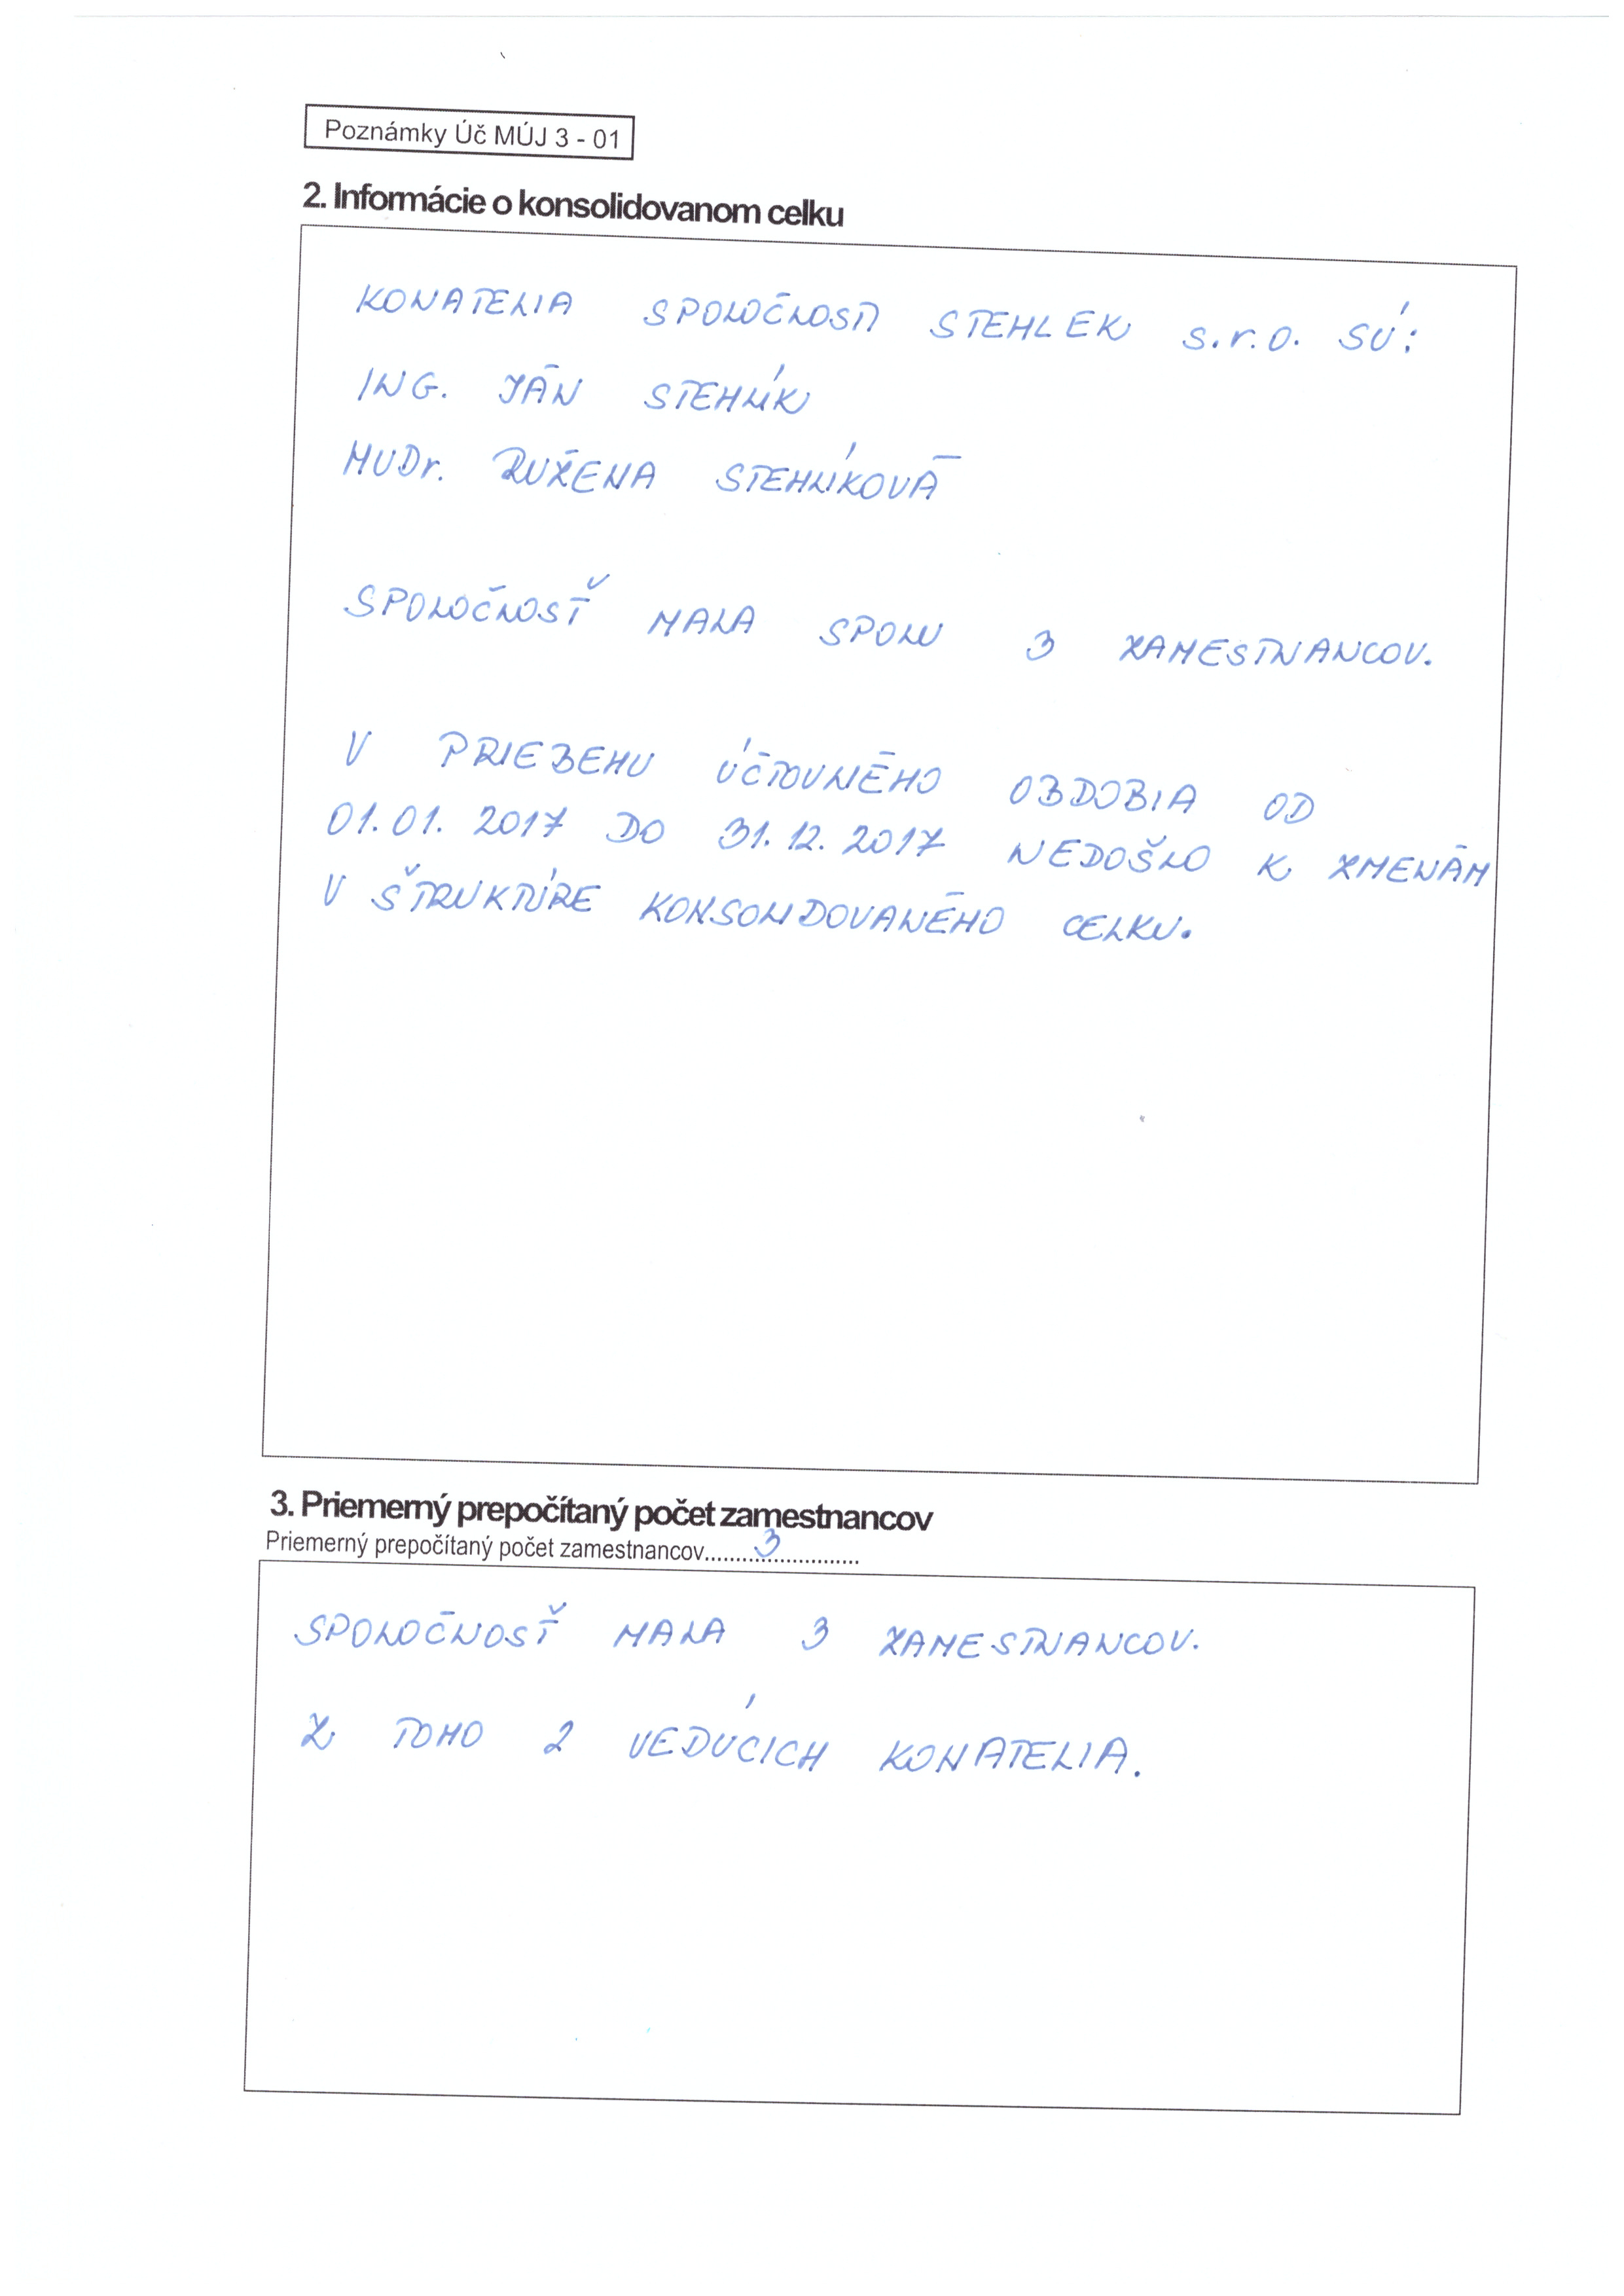 Poznámky Úč MÚJ 3 - 01
2. Informácie o konsolidovanom celku
KONATELIA SPOLOČNOSTI STEHLEK s.r.o. SÚ:
ING. JÁN STEHLÍK
MUDr. RUŽENA STEHLÍKOVÁ
SPOLOČNOSŤ MALA SPOLU 3 ZAMESTNANCOV.
V PRIEBEHU ÚČTOVNÉHO OBDOBIA OD
01.01. 2017 DO 31.12. 2017 NEDOŠLO K ZMENÁM
V ŠTRUKTÚRE KONSOLIDOVANÉHO CELKU.
3. Priemerný prepočítaný počet zamestnancov
Priemerný prepočítaný počet zamestnancov.........3...............
SPOLOČNOSŤ MALA 3 ZAMESTNANCOV.
Z TOHO 2 VEDÚCICH KONATELIA.